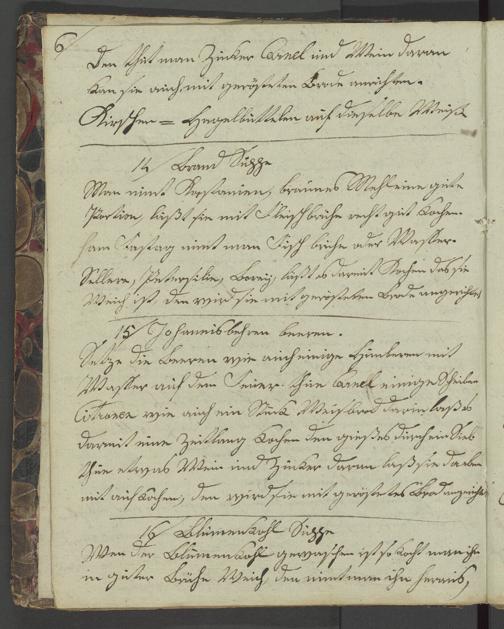 6
Den thut man Zucker Canel und Wein daran
kan sie auch mit gerösteten Brode anrichten.
Kirschen = Hagelbuttelen auf dieselbe Weise
14 Brand Suppe
Man nimt Kastanien, braunes Mehl eine gute
Portion, laßt sie mit Fleischbrühe recht gut kochen.
am Fastag nimt man Fisch brühe oder Wasser.
Sellere, Petersilie, laßt es darmit kochen das sie
Weich ist den wird sie mit geröstetem Brode angerichtet
15 Johannisbehren beeren.
Setze die Beeren wie auch einige Himberen mit
Wasser auf dem Feuer. thue Canel einige Scheiben
Citronen wie auch ein Stück Weisbrod darin laß es
darmit eine Zeitlang kochen den gieß es durch ein Sieb
thue etwas Wein und Zucker daran laß sie
mit auf kochen, den wird sie mit geröstetes Brod angerichtet
16 Blumenkohl Suppe
Wen der Blumenkohl gewaschen ist so kocht man ihn
in guter Brühe Weich, den nimt man ihn heraus,